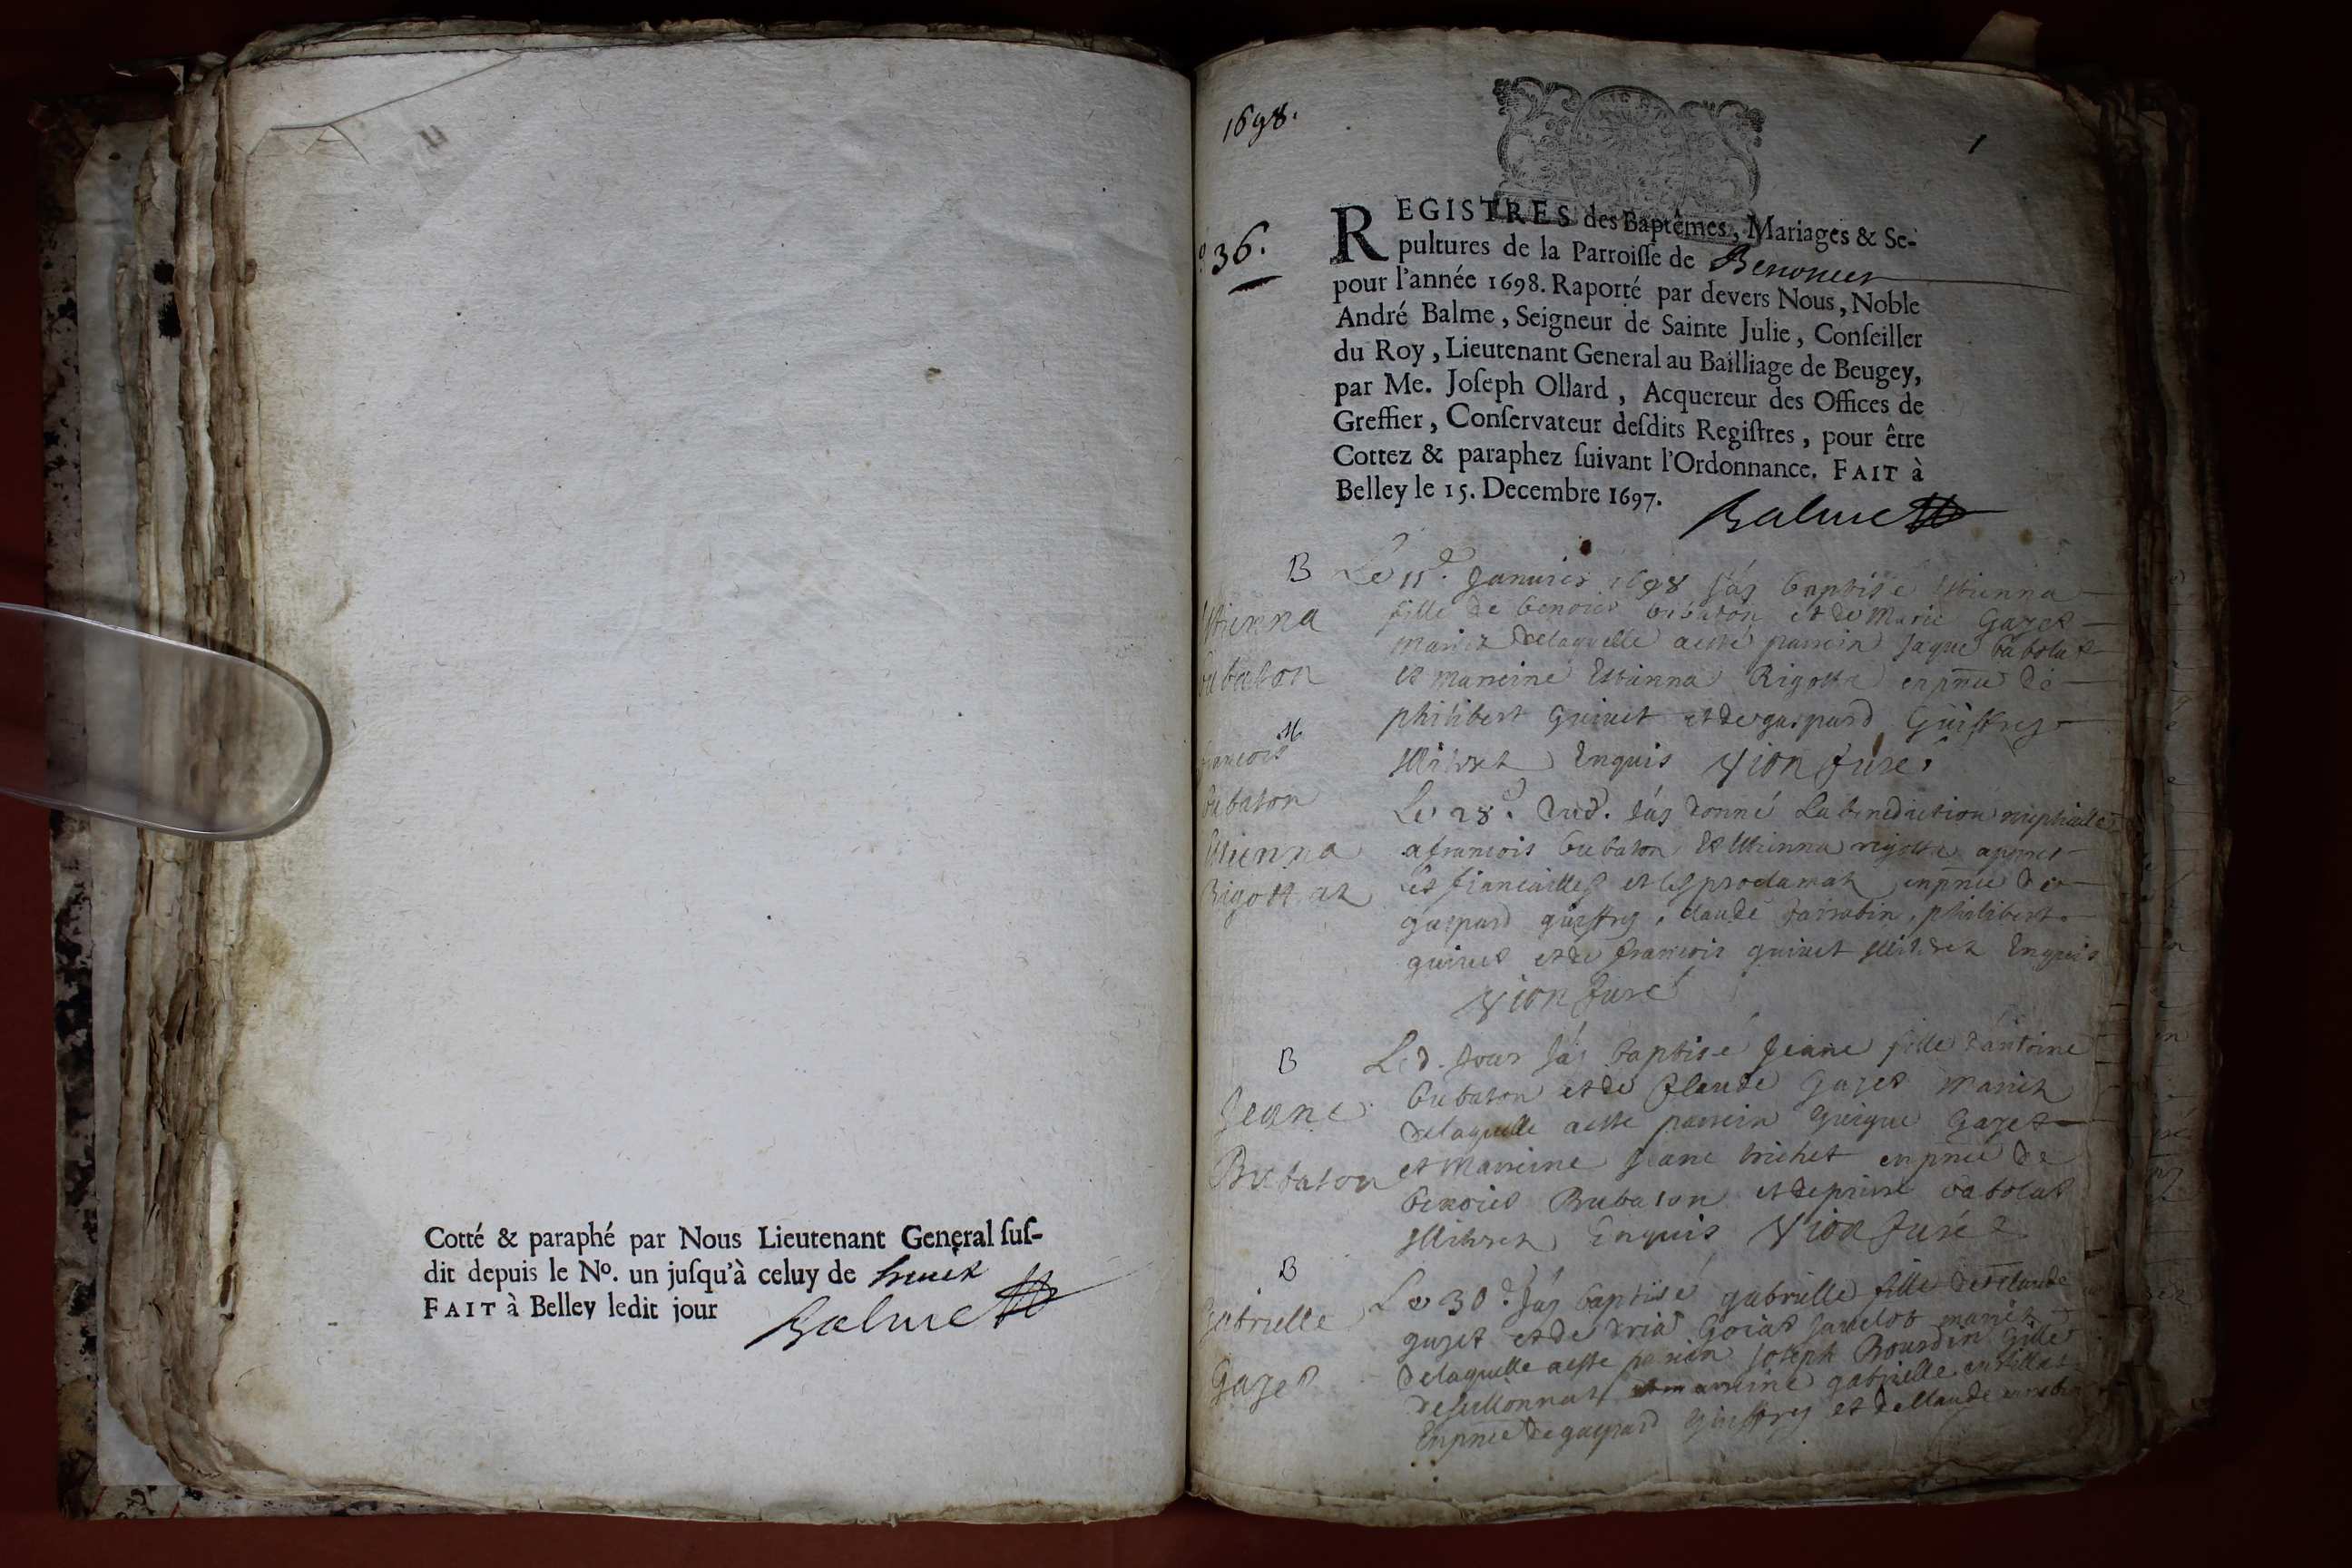 Cotté & paraphé par Nous Lieutenant General ſuſ-
dit depuis le Nº. un juſqu'à celuy de
FAIT à Belley ledit jour
Balme
1698.
1
36.
REGISTRES des Baptêmes, Mariages & Se-
pultures de la Parroiſſe de Benonces
pour l'année 1698. Raporté par devers Nous, Noble
André Balme, Seigneur de Sainte Julie, Conſeiller
du Roy, Lieutenant General au Bailliage de Beugey,
par Me. Joſeph Ollard, Acquereur des Offices de
Greffier, Conſervateur deſdits Regiſtres, pour être
Cottez & paraphez ſuivant l'Ordonnance. FAIT à
Belley le 15. Decembre 1697.
Balme
B
Estienna
bubaton
Le 11e. Janvier 1698 Jay baptisé Estienna
fille de benoict bubaton et de Marie Gazet
mariez de laquelle aesté parrein Jaque babolat
et marreine Estienna Rigotta en pnce de
philibert guinet et de gaspard Guiffrey
illitrez Enquis Vion Curé
M
francois
bubaton
Estienna
Rigottaz
Le 28e. dud. Jay donné La benediction nuptialle
a francois bubaton Et Estienna rigotta apprez
les fiancailles et les proclamats en pnce de
gaspard guiffrey, claude, philibert
guinet et de francois guinet illitrez Enquis
Vion Curé
B
Jeane
Bubaton
Led. Jour Jay baptisé Jeane fille dantoine
bubaton et de Claude Gazet Mariez
de laquelle aeste parrein guigue Gazet
et Marreine Jeane trichet en pnce de
benoict Bubaton et de pierre babolat
illitrez Enquis Vion Curé
B
Gabrielle
Gazet
Le 30e. Jay baptisé gabrielle fille de Claude
gazet et de mariez
de laquelle aeste parrein Joseph Bourdin
marreine gabrielle
En pnce de gaspard Guiffrey et de Claude